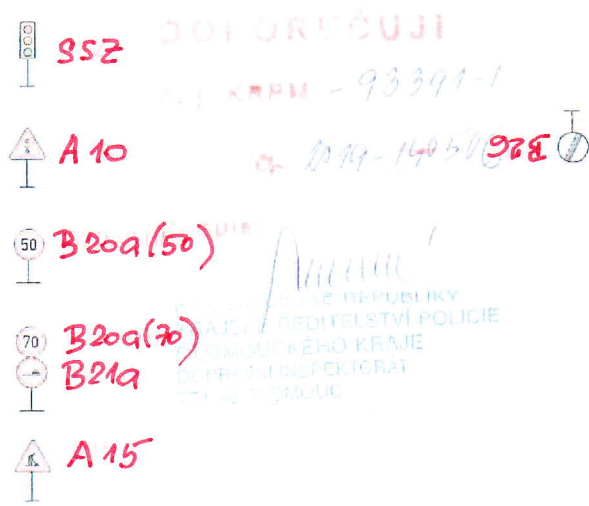 SSZ
DOPORUČUJI
KRPM - 93391-1
A 10
B26
50 B20a (50)
70 B20a (70)
B21a
REPUBLIKY
KRAJSKÉ ŘEDITELSTVÍ POLICIE
OLOMOUCKÉHO KRAJE
DOPRAVNÍ INSPEKTORÁT
OLOMOUC
A 15